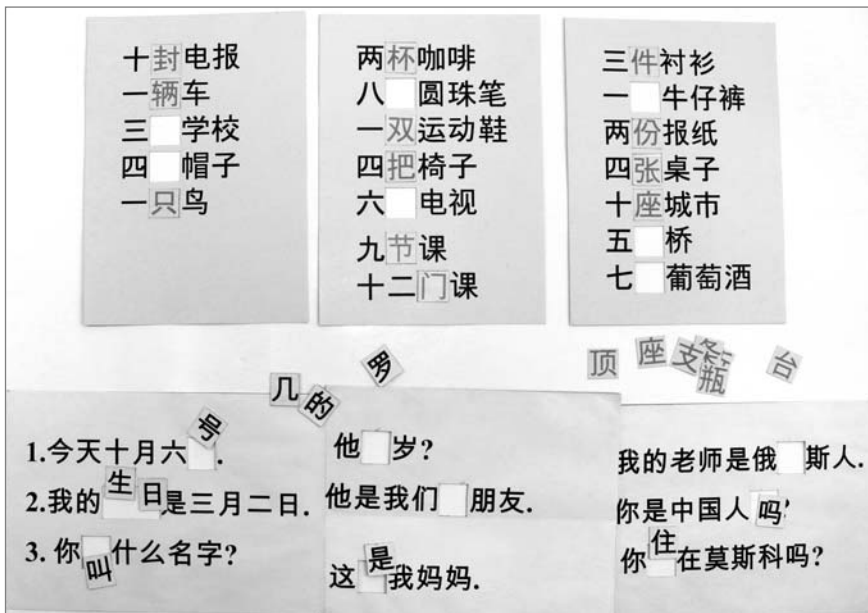 十封电报
一辆车
三 学校
四 帽子
一只鸟
两杯咖啡
八 圆珠笔
一双运动鞋
四把椅子
六 电视
九节课
十二门课
三件衬衫
一 牛仔裤
两份报纸
四张桌子
十座城市
五 桥
七 葡萄酒
顶 座 支 条 瓶 台
几 的 罗
1.今天十月六号.
2.我的生日是三月二日.
3. 你叫什么名字?
他 岁?
他是我们 朋友.
这是我妈妈.
我的老师是俄 斯人.
你是中国人吗?
你住在莫斯科吗?